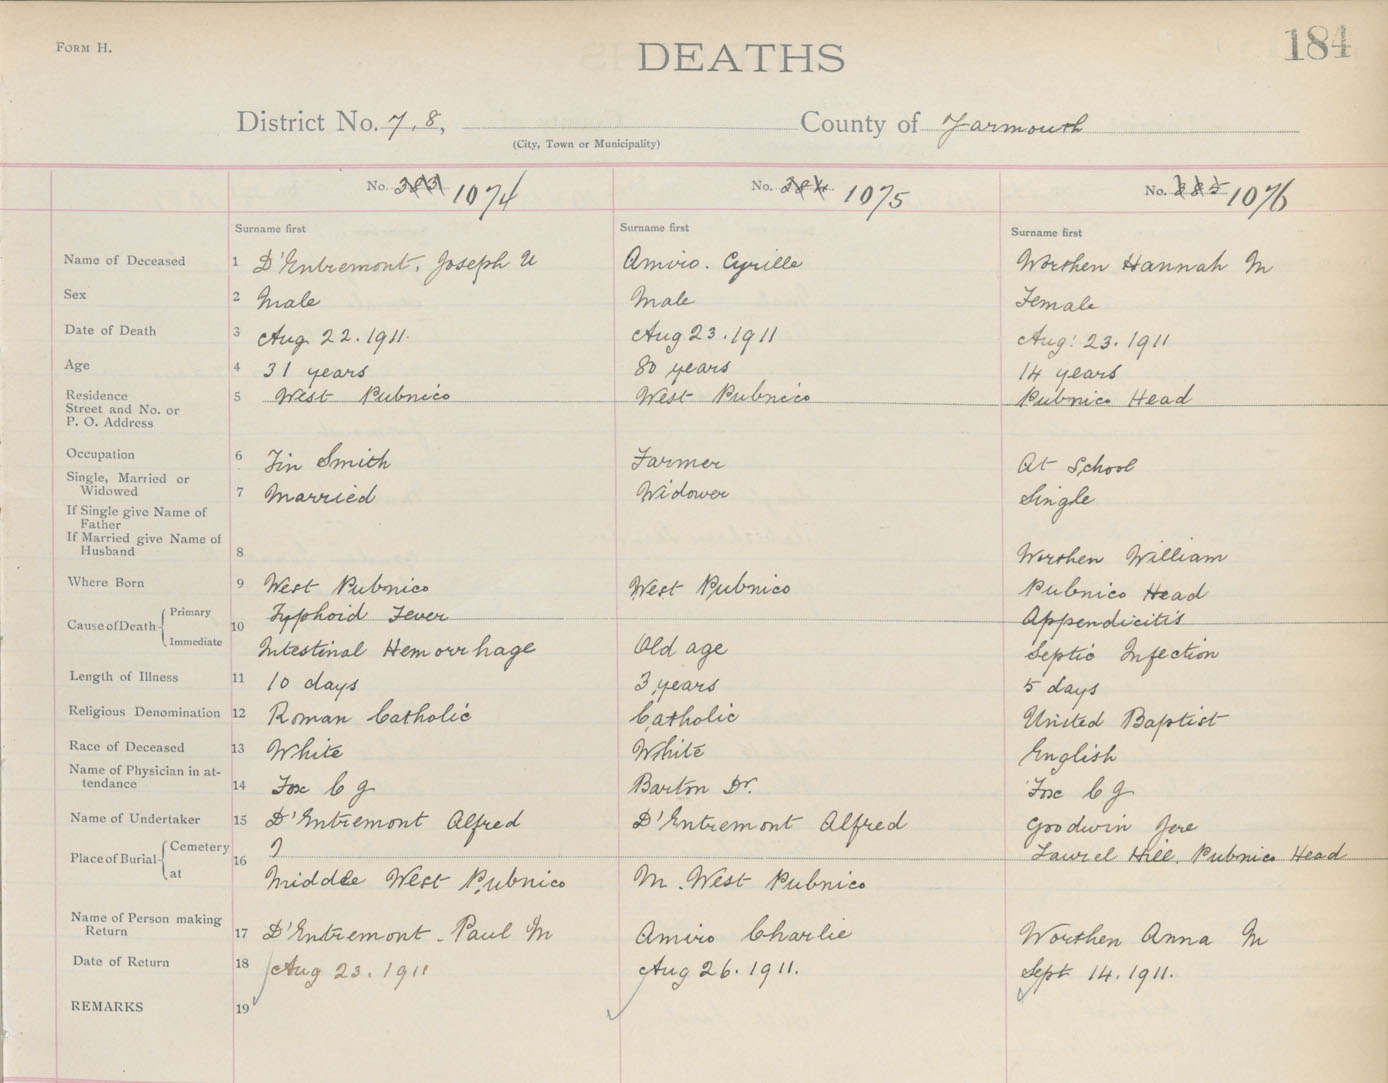 FORM H.
DEATHS
184
District No. 7, 8, County of Yarmouth
(City, Town or Municipality)
No. 383 1074 No. 384 1075 No. 385 1076
Surname first Surname first Surname first
Name of Deceased 1 D'Entremont, Joseph U Amiro. Cyrille Worthen Hannah M
Sex 2 Male Male Female
Date of Death 3 Aug 22. 1911. Aug 23. 1911 Aug: 23. 1911
Age 4 31 years 80 years 14 years
Residence 5 West Pubnico West Pubnico Pubnico Head
Street and No. or
P. O. Address
Occupation 6 Tin Smith Farmer At School
Single, Married or
Widowed 7 Married Widower Single
If Single give Name of
Father
If Married give Name of
Husband 8 Worthen William
Where Born 9 West Pubnico West Pubnico Pubnico Head
Cause of Death 10 Primary Typhoid Fever Appendicitis
Immediate Intestinal Hemorrhage Old age Septic Infection
Length of Illness 11 10 days 3 years 5 days
Religious Denomination 12 Roman Catholic Catholic United Baptist
Race of Deceased 13 White White English
Name of Physician in at-
tendance 14 Fox C J Barton Dr. Fox C J
Name of Undertaker 15 D'Entremont Alfred D'Entremont Alfred Goodwin Jere
Place of Burial 16 Cemetery ? Laurel Hill, Pubnico Head
at Middle West Pubnico M. West Pubnico
Name of Person making
Return 17 D'Entremont. Paul M Amiro Charlie Worthen Anna M
Date of Return 18 Aug 23. 1911 Aug 26. 1911. Sept 14. 1911.
REMARKS 19